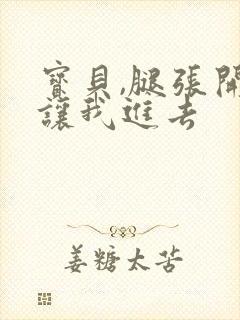 寶貝,腿張開
讓我進去
姜糖太苦